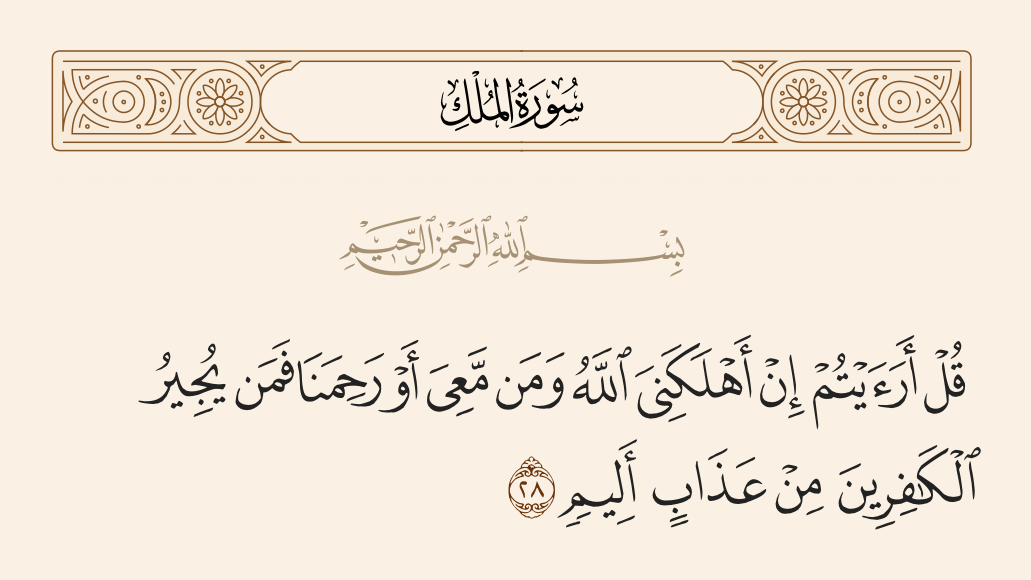 سُورَةُ المُلْكِ
بِسْمِ ٱللَّهِ ٱلرَّحْمَٰنِ ٱلرَّحِيمِ
قُلْ أَرَءَيْتُمْ إِنْ أَهْلَكَنِىَ ٱللَّهُ وَمَن مَّعِىَ أَوْ رَحِمَنَا فَمَن يُجِيرُ
ٱلْكَٰفِرِينَ مِنْ عَذَابٍ أَلِيمٍ ٢٨